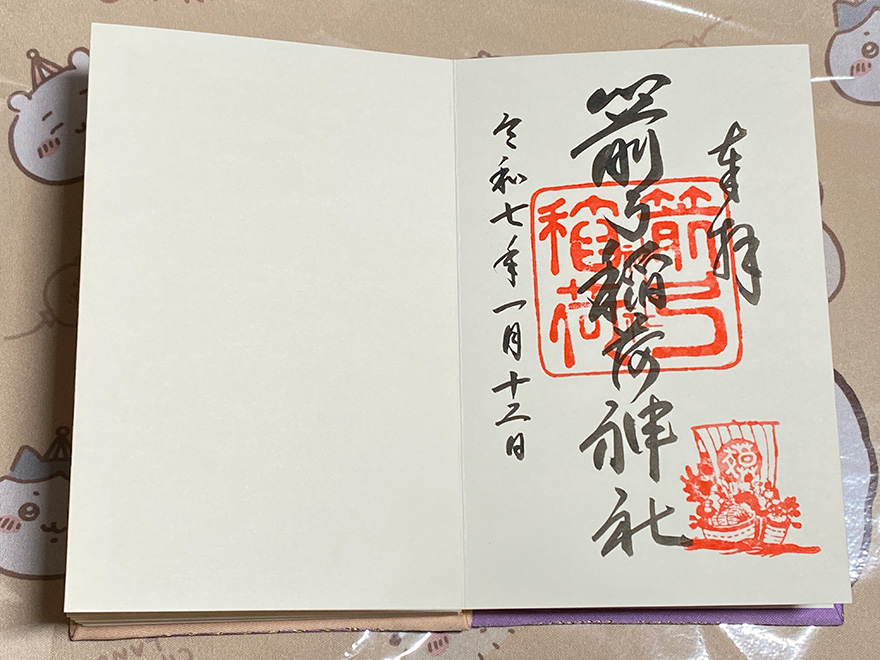 奉拝
箭弓稲荷神社
箭弓
稲荷
令和七年一月十二日